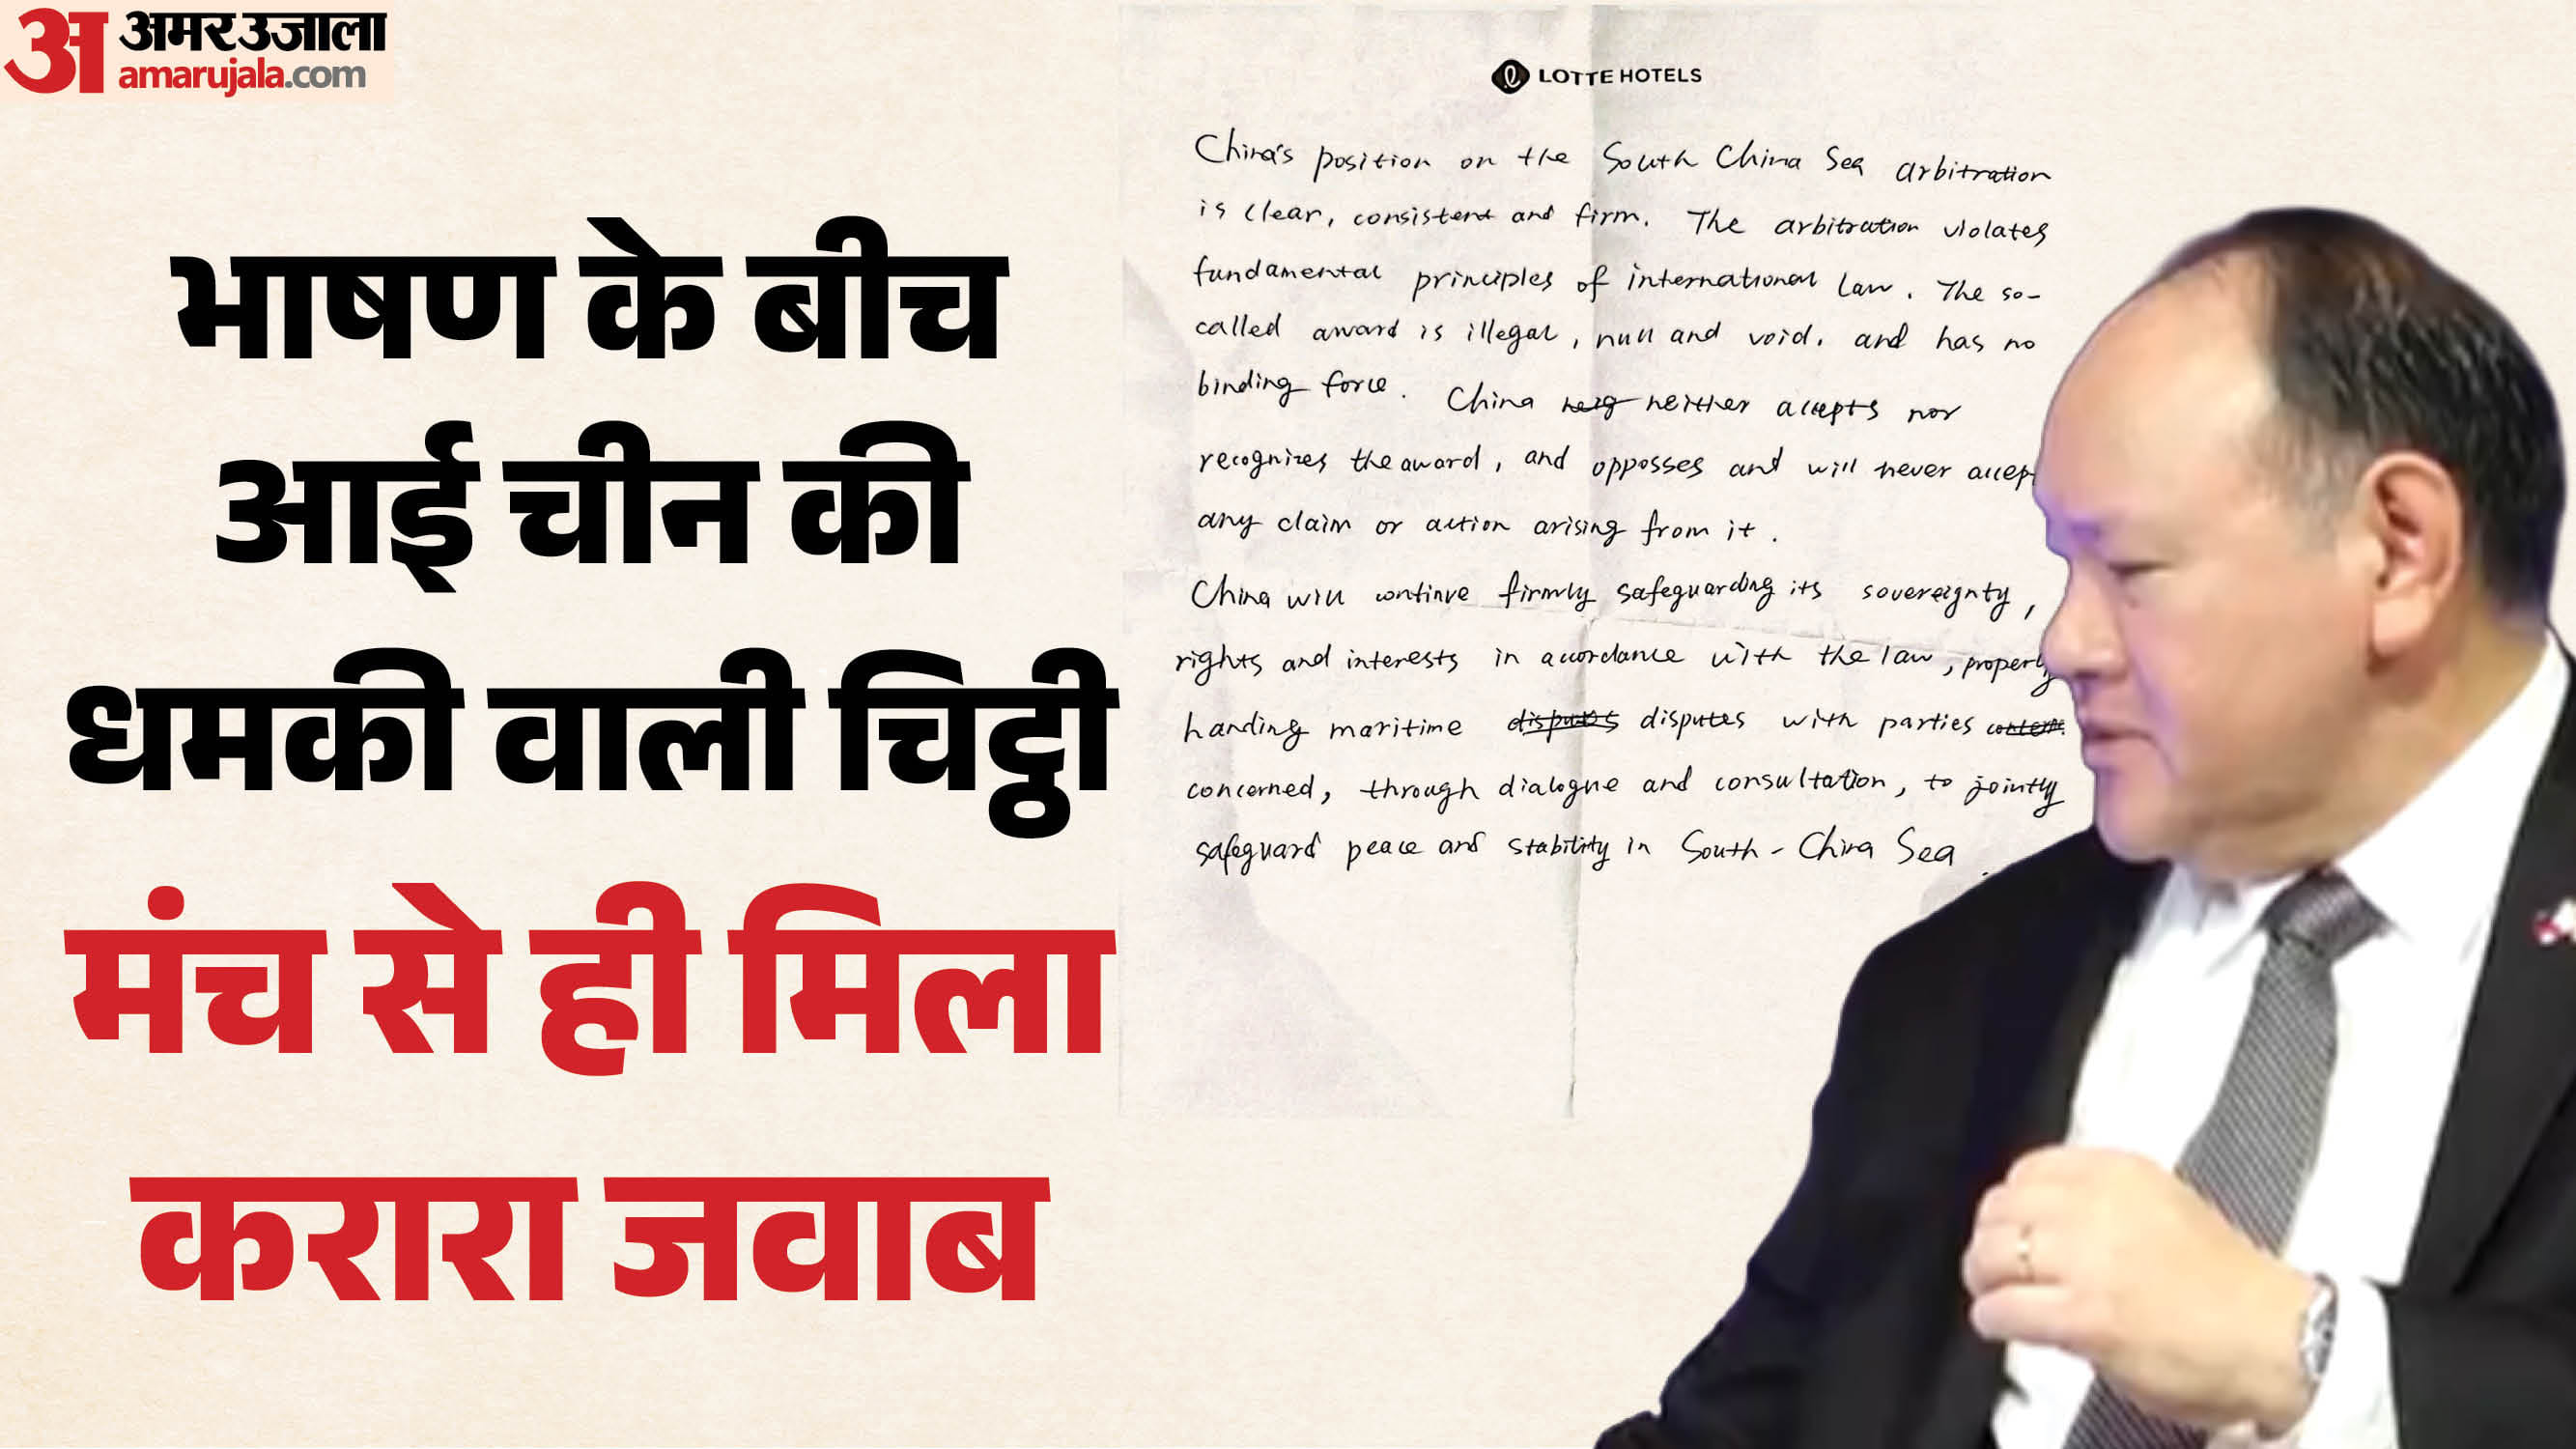 अ अमर उजाला
amarujala.com
भाषण के बीच
आई चीन की
धमकी वाली चिट्ठी
मंच से ही मिला
करारा जवाब
LOTTE HOTELS
China's position on the South China Sea arbitration
is clear, consistent and firm. The arbitration violates
fundamental principles of international law. The so-
called award is illegal, null and void. and has no
binding force. China neither accepts nor
recognizes the award, and opposses and will never accep
any claim or action arising from it.
China will continue firmly safeguarding its sovereignty,
rights and interests in accordance with the law, properly
handing maritime disputes disputes with parties
concerned, through dialogue and consultation, to jointly
safeguard peace and stability in South-China Sea